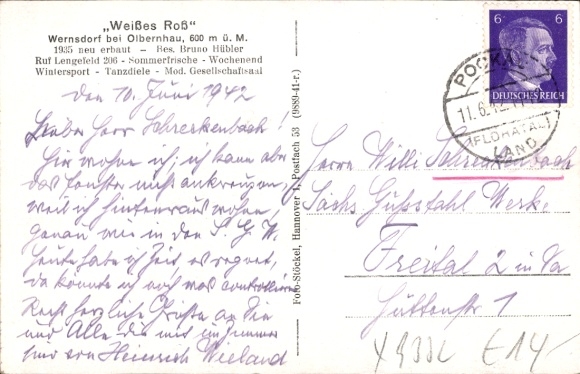 „Weißes Roß"
Wernsdorf bei Olbernhau, 600 m ü. M.
1935 neu erbaut – Bes. Bruno Hübler
Ruf Lengefeld 206 - Sommerfrische - Wochenend
Wintersport - Tanzdiele - Mod. Gesellschaftssaal
den 10. Juni 1942
Lieber Herr Schreckenbach!
Hier wohne ich; ich kann aber
das Fenster nicht ankreuzen,
weil ich hintenraus wohne,
genau wie in den S. G. W.
Heute habe ich Zeit, es regnet,
da konnte ich auch was
Recht herzliche Grüße an Sie
und Alle die mit im Zimmer
sind von Heinrich Wieland
Foto-Stöckel, Hannover 1, Postfach 53 (9889-41-r.)
6 6
DEUTSCHES REICH
POCKAU
11.6.42
(FLÖHATAL)
LAND
Herrn Willi Schreckenbach
Sächs Gußstahl Werke
Freital 2 in Sa
Hüttenstr 1
€ 14,-